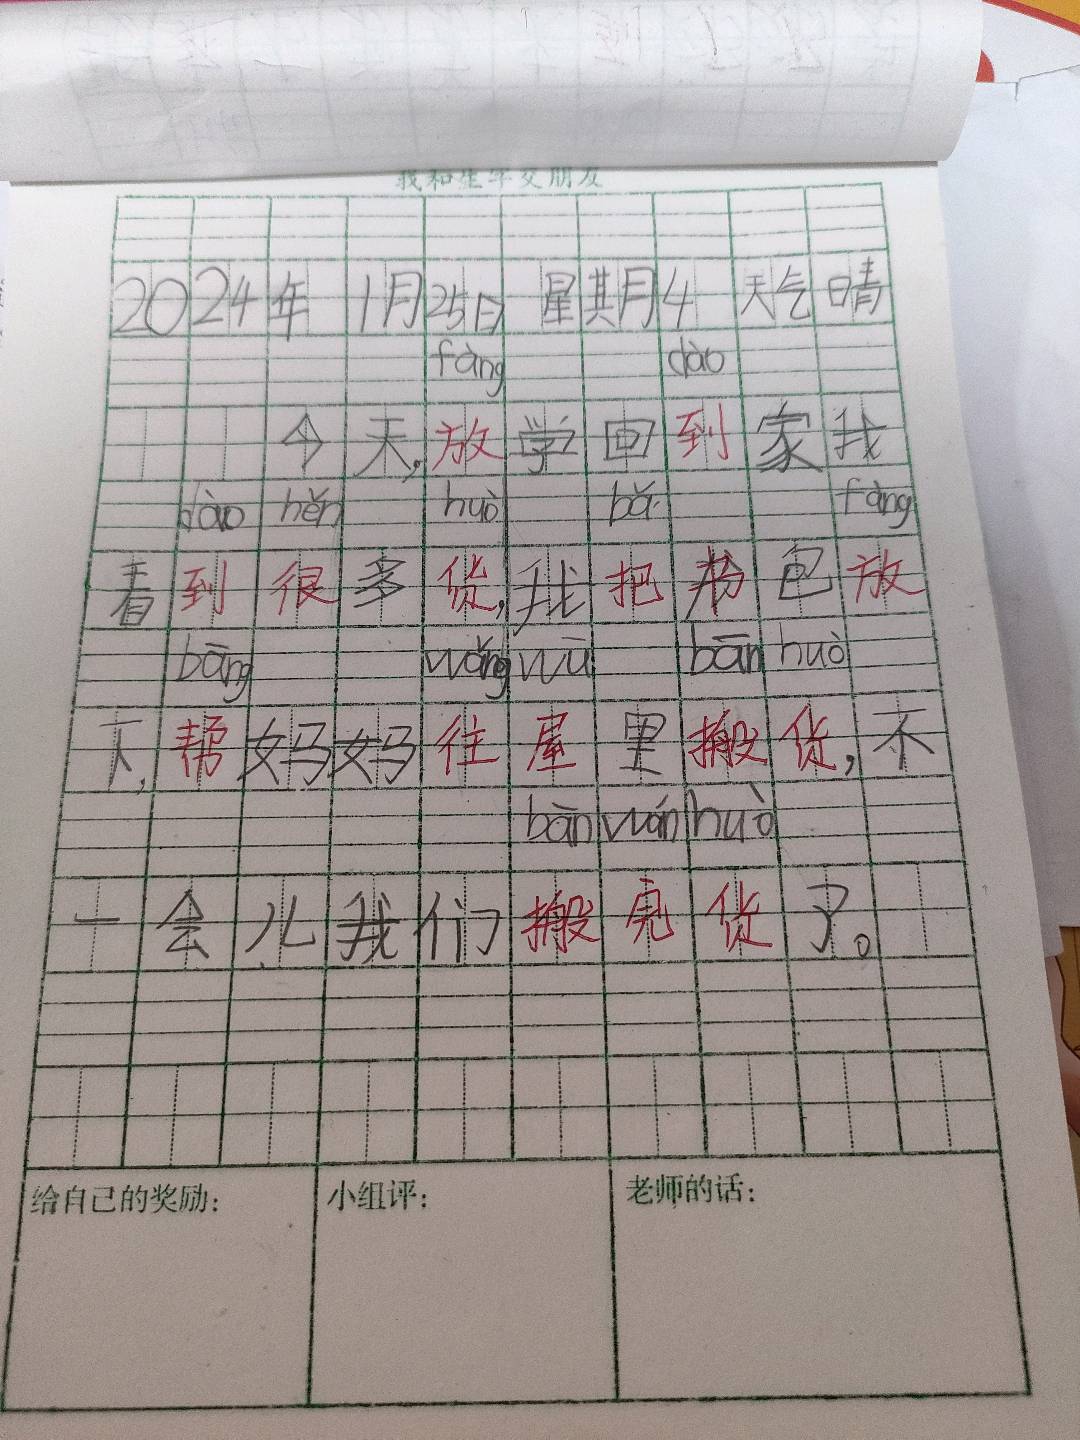 我和生字交朋友
2024年 1月25日 星其月4 天气晴
fàng dào
今天,放学回到家我
dào hěn huò bǎ fàng
看到很多货,我把书包放
bāng wǎng wū bān huò
下,帮妈妈往屋里搬货,不
bān wán huò
一会儿我们搬完货了。
给自己的奖励: 小组评: 老师的话: